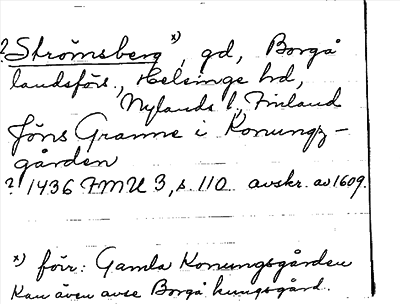 ? Strömsberg x), gd, Borgå
landsförs., Helsinge hd,
Nylands l., Finland
Jöns Granne i Konungz-
gården
? 1436 FMU 3, s. 110 avskr. av 1609.
x) förr: Gamla Konungsgården
Kan även avse Borgå kungsgård.